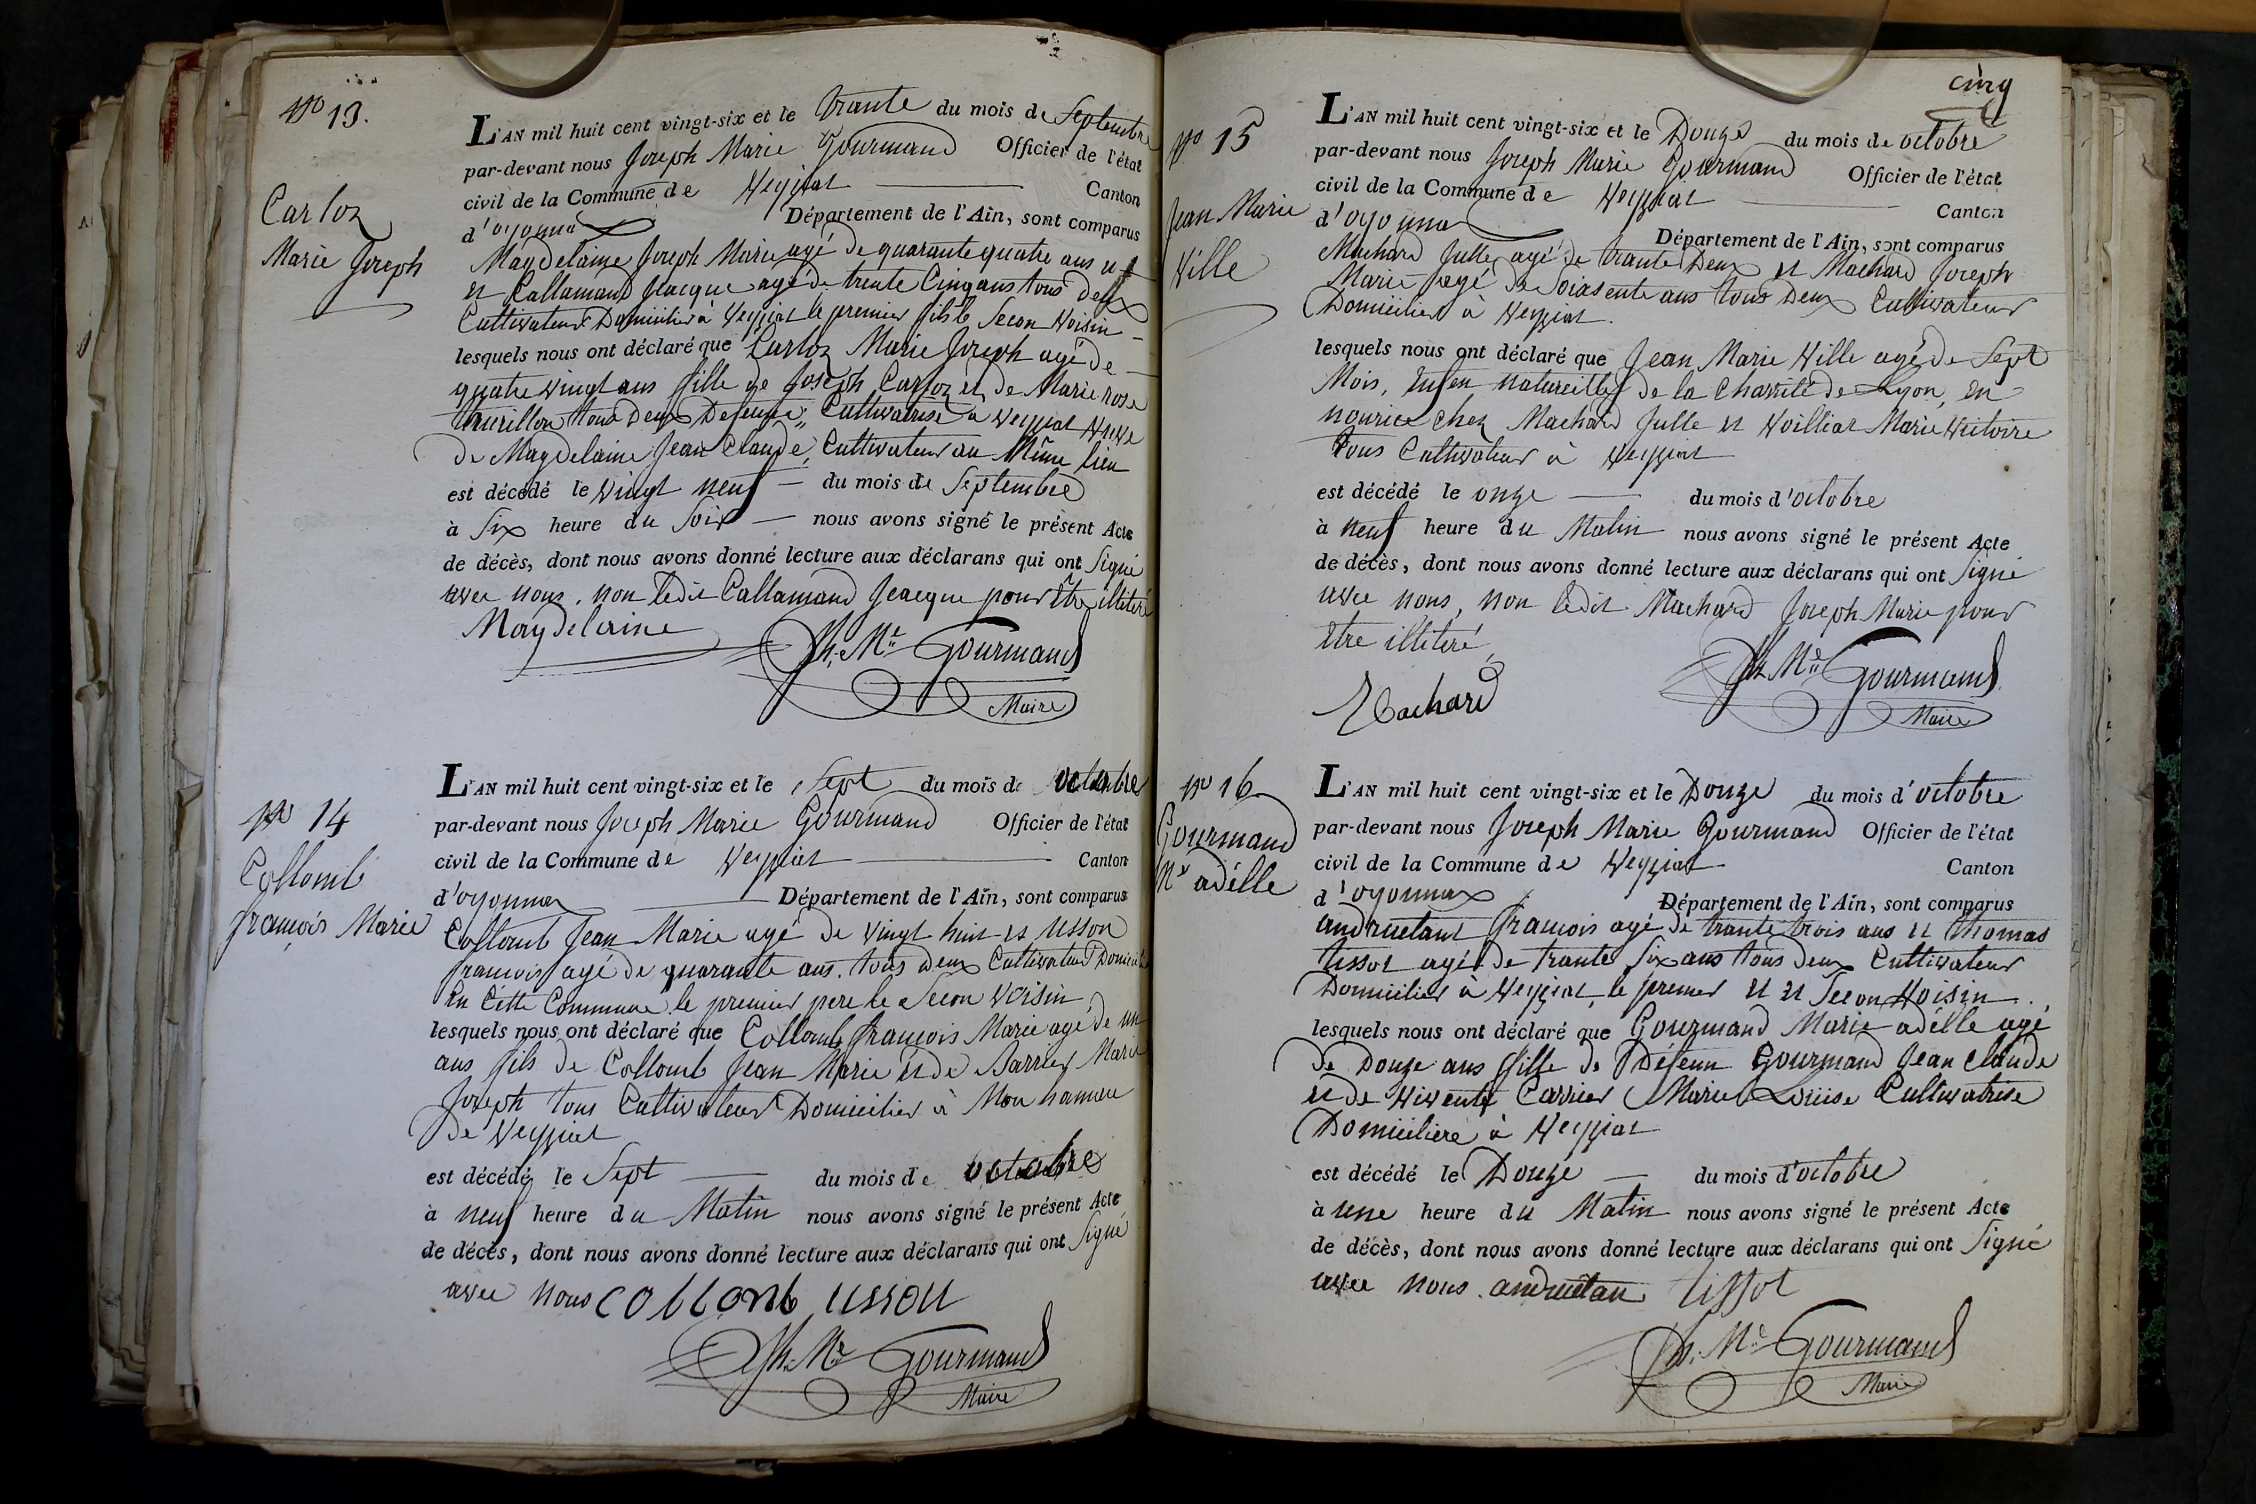 No 13.
Carloz
Marie Joseph
L'AN mil huit cent vingt-six et le trante du mois de Septembre
par-devant nous Joseph Marie Gourmand Officier de l'état
civil de la Commune de Veyziat Canton
d'oyonna Département de l'Ain, sont comparus
Magdelaine Joseph Marie agé de quarante quatre ans
et Callamand Jeacque agé de trente Cinq ans tous deux
Cultivateur Domicilier à Veyziat le premier fils le Secon Voisin
lesquels nous ont déclaré que Carloz Marie Joseph agé de
quatre vingt ans fille de Joseph Carloz et de Marie rose
tous deux Defunts, Cultivatrise à Veyziat veuve
de Magdelaine Jean Claude, Cultivateur au Même lieu
est décédé le vingt neuf du mois de Septembre
à Six heure du Soir nous avons signé le présent Acte
de décès, dont nous avons donné lecture aux déclarans qui ont Signé
avec nous, non ledit Callamand Jeacque pour être illitéré
Magdelaine Jh. Mie Gourmand
Maire
No 14
Collomb
françois Marie
L'AN mil huit cent vingt-six et le Sept du mois de octobre
par-devant nous Joseph Marie Gourmand Officier de l'état
civil de la Commune de Veyziat Canton
d'oyonnax Département de l'Ain, sont comparus
Collomb Jean Marie agé de vingt huit et Usson
francois agé de quarante ans, tous deux Cultivateur Domicilié
En Cette Commune le premier pere le Secon Voisin
lesquels nous ont déclaré que Collomb françois Marie agé de un
ans fils de Collomb Jean Marie et de Barrier Marie
Joseph tous Cultivateur Domicilier à Mon hameau
de Veyziat
est décédé le Sept du mois de octobre
à neuf heure du Matin nous avons signé le présent Acte
de décès, dont nous avons donné lecture aux déclarans qui ont Signé
avec nous collomb usson
Jh. Mie Gourmand
Maire
cinq
No 15
Jean Marie
Ville
L'AN mil huit cent vingt-six et le Douze du mois de octobre
par-devant nous Joseph Marie Gourmand Officier de l'état
civil de la Commune de Veyziat Canton
d'oyonna Département de l'Ain, sont comparus
Machard Julle agé de trante Deux et Machard Joseph
Marie agé de Soiasente ans tous Deux Cultivateur
Domicilier à Veyziat.
lesquels nous ont déclaré que Jean Marie Ville agé de Sept
Mois, Enfen natureille de la Charrité de Lyon, en
nourice chez Machard Julle et Voilliat Marie Victoire
tous Cultivateur à Veyziat
est décédé le onze du mois d'octobre
à neuf heure du Matin nous avons signé le présent Acte
de décès, dont nous avons donné lecture aux déclarans qui ont Signé
avec nous, non ledit Machard Joseph Marie pour
être illitéré,
Machard Jh. Mie Gourmand
Maire
No 16
Gourmand
Me adélle
L'AN mil huit cent vingt-six et le Douze du mois d'octobre
par-devant nous Joseph Marie Gourmand Officier de l'état
civil de la Commune de Veyziat Canton
d'oyonnax Département de l'Ain, sont comparus
andruetant francois agé de trante trois ans et thomas
tissot agé de trante Six ans tous deux Cultivateur
Domicilier à Veyziat, le premer et et Secon Voisin.
lesquels nous ont déclaré que Gourmand Marie adélle agé
de Douze ans fille de Défeun Gourmand Jean Claude
et de vivente Carrier Marie Louise Cultivatrise
Domiciliere à Veyziat
est décédé le Douze du mois d'octobre
à une heure du Matin nous avons signé le présent Acte
de décès, dont nous avons donné lecture aux déclarans qui ont Signé
avec nous andruétan tissot
Jh. Mie Gourmand
Maire